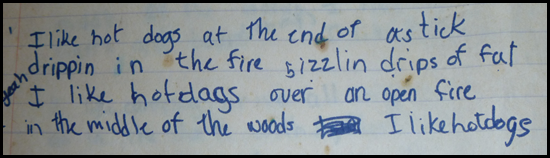 I like hot dogs at the end of a stick
yeah drippin in the fire sizzlin drips of fat
I like hotdags over an open fire
in the middle of the woods I like hotdogs